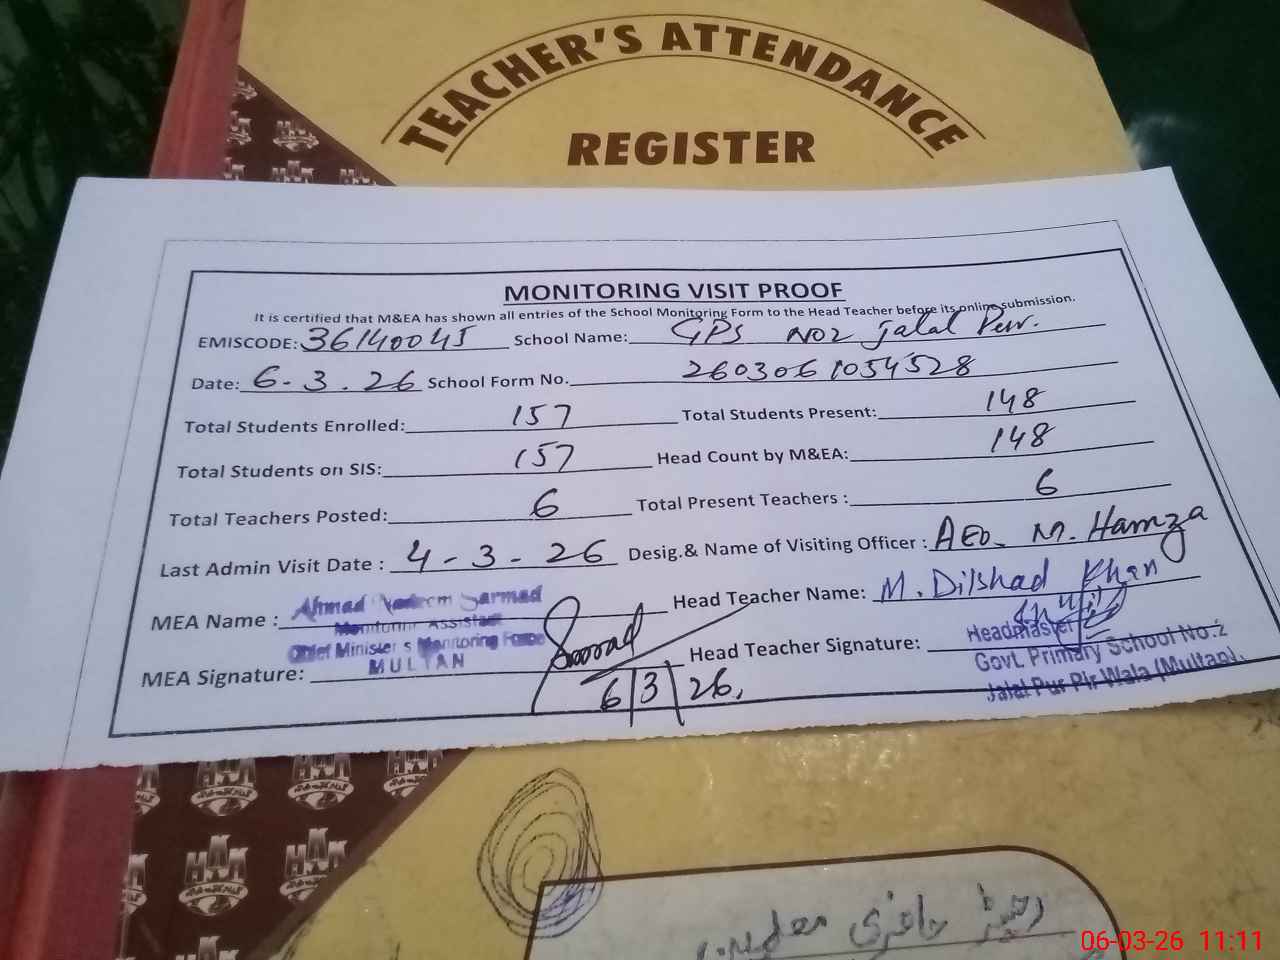 TEACHER'S ATTENDANCE
REGISTER
MONITORING VISIT PROOF
It is certified that M&EA has shown all entries of the School Monitoring Form to the Head Teacher before its online submission.
EMISCODE: 36140045 School Name: GPS NO2 Jalal Pur.
Date: 6-3.26 School Form No. 2603061054528
Total Students Enrolled: 157 Total Students Present: 148
Total Students on SIS: 157 Head Count by M&EA: 148
Total Teachers Posted: 6 Total Present Teachers : 6
Last Admin Visit Date : 4-3-26 Desig.& Name of Visiting Officer : AEO. M. Hamza
MEA Name : Ahmad Nadeem Sarmad Head Teacher Name: M. Dilshad Khan
Monitoring Assistant
Chief Minister's Monitoring Force
MULTAN
MEA Signature: Sarmad Head Teacher Signature:
6/3/26,
Headmaster
Govt. Primary School No.2
Jalal Pur Pir Wala (Multan).
رجسٹر حاضری معلمین
06-03-26 11:11